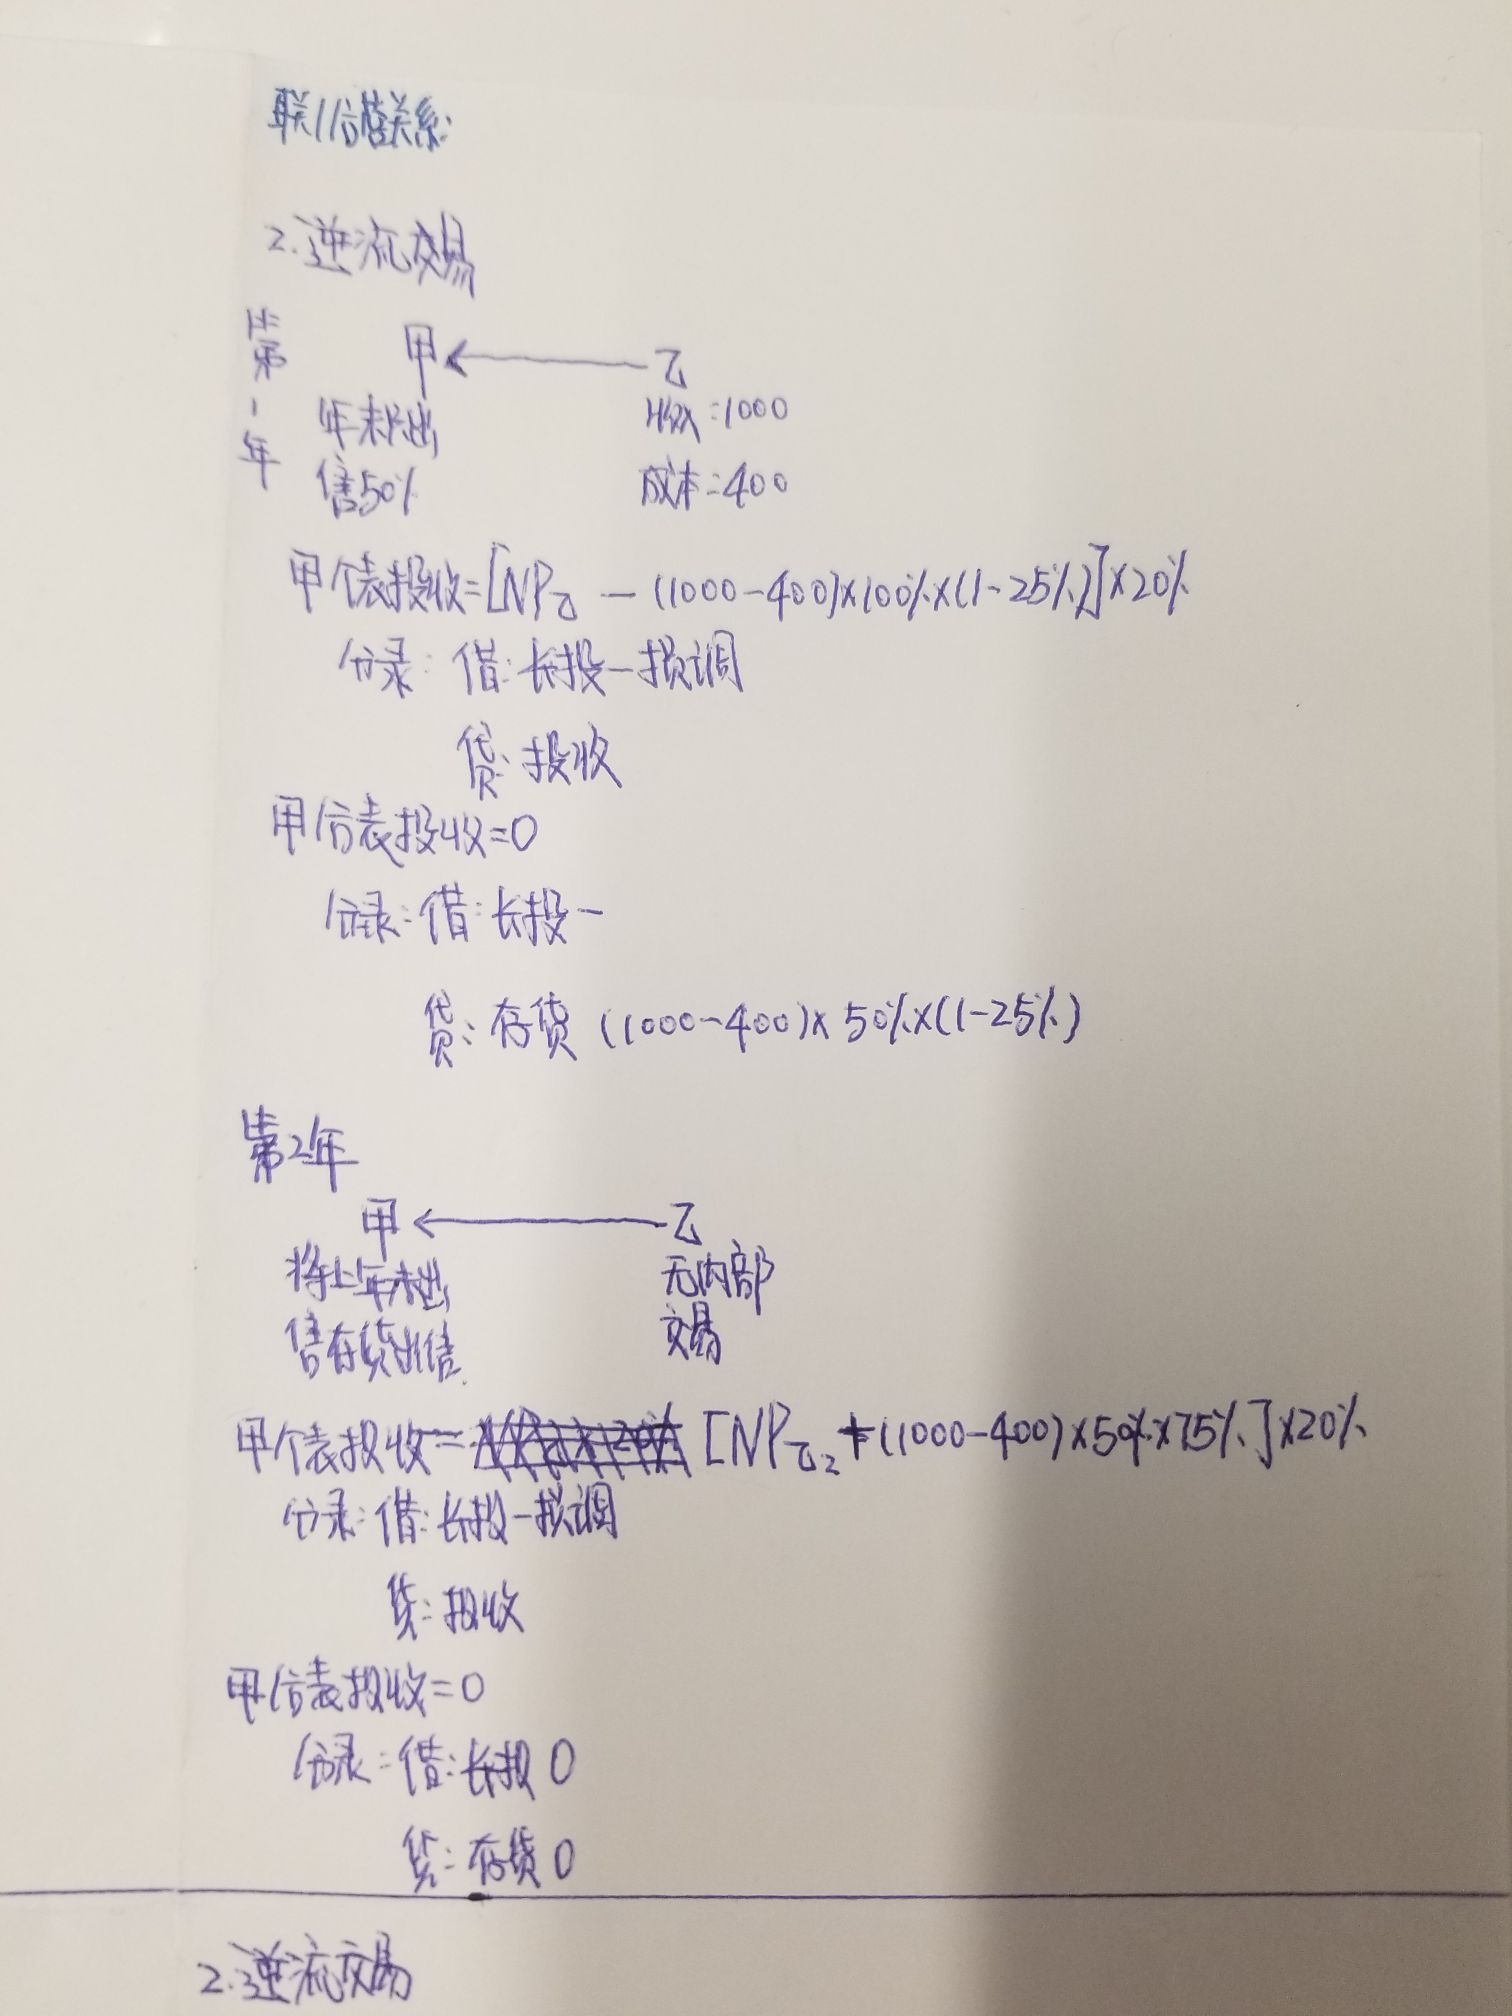 联/合营关系:
2.逆流交易
第1年
甲 ← 乙
年末出 收入:1000
售50% 成本:400
甲个表投收=[NP乙 - (1000-400)×100%×(1-25%)]×20%
分录: 借: 长投-损调
贷: 投收
甲合表投收=0
分录: 借: 长投-
贷: 存货 (1000-400)×50%×(1-25%)
第2年
甲 ← 乙
将上年未出 无内部
售存货出售. 交易
甲个表投收= [NP乙2 +(1000-400)×50%×75%]×20%
分录: 借: 长投-损调
贷: 投收
甲合表投收=0
分录: 借: 长投 0
贷: 存货 0
2.逆流交易